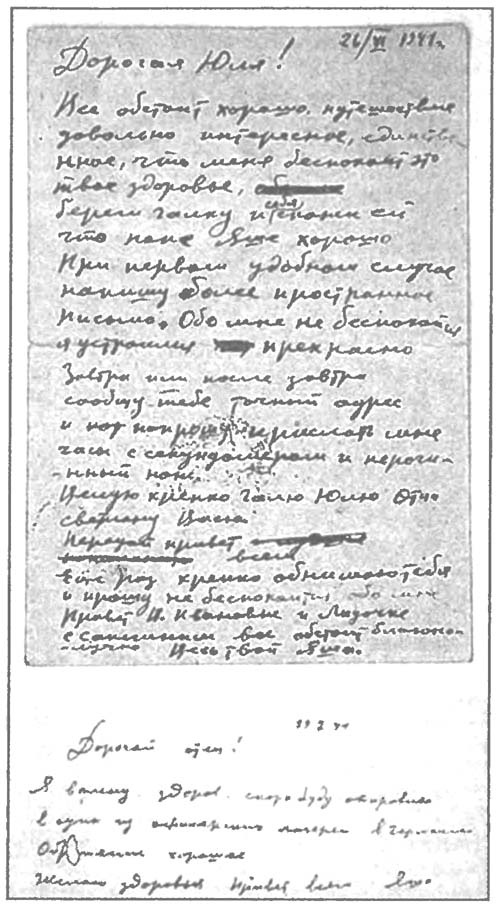 26/VI 1941г.
Дорогая Юля!
Все обстоит хорошо, путешествие
довольно интересное, единстве-
нное, что меня беспокоит это
твое здоровье,
береги Галку и себя скажи ей
что папе Яше хорошо
При первом удобном случае
напишу более пространное
письмо. Обо мне не беспокойся
я устроился прекрасно
Завтра или после завтра
сообщу тебе точный адрес
и попрошу прислать мне
часы с секундомером и перочи-
-нный нож.
Целую крепко Галю Юлю Отца
Светлану Васю.
Передай привет всем
Еще раз крепко обнимаю тебя
и прошу не беспокоиться обо мне
Привет В. Ивановне и Лидочке
с Сапегиным все обстоит благопо-
-лучно Весь твой Яша.
19 7 41
Дорогой отец!
Я вполне здоров, скоро буду отправлен
в один из офицерских лагерей в Германии
Обращение хорошее
Желаю здоровья Привет всем Яша